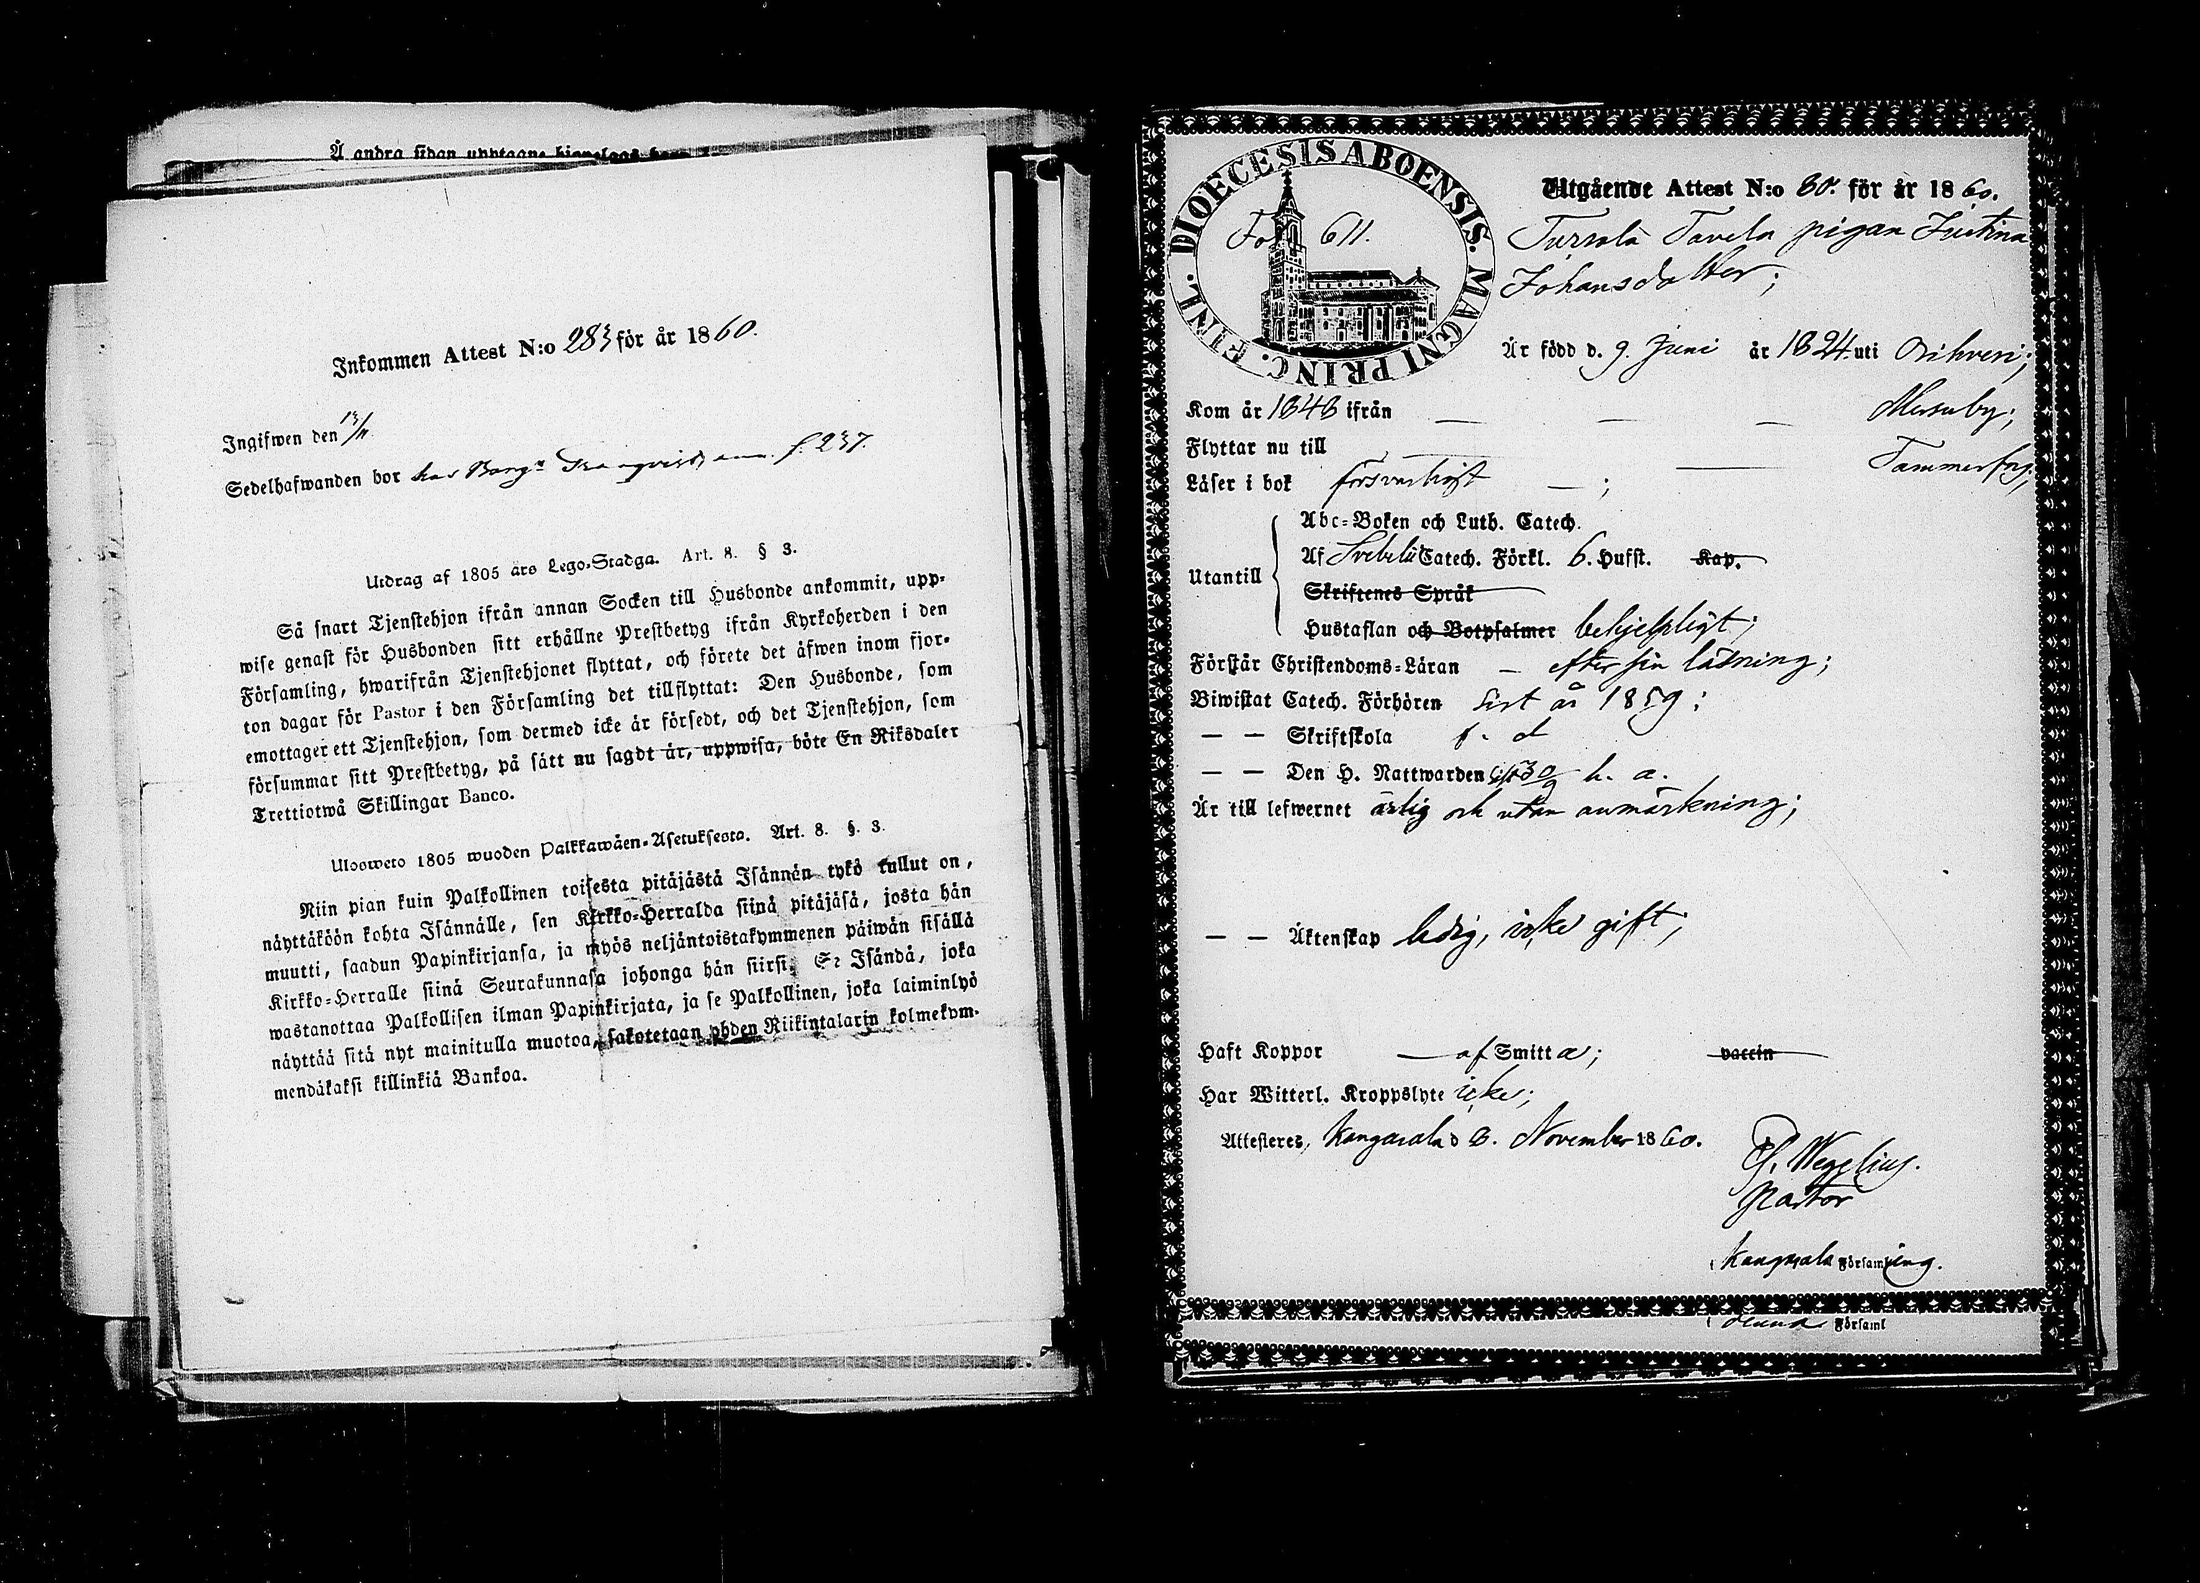 Å andra sidan upptagne
Inkommen Attest N:o 283 för år 1860.
Ingifwen den 13/11
Sedelhafwanden bor hos f. 237.
Utdrag af 1805 års Lego-Stadga. Art. 8. § 3.
Så snart Tjenstehjon ifrån annan Socken till Husbonde ankommit, upp-
wise genast för Husbonden sitt erhållne Prestbetyg ifrån Kyrkoherden i den
Församling, hwarifrån Tjenstehjonet flyttat, och förete det äfwen inom fjor-
ton dagar för Pastor i den Församling det tillflyttat: Den Husbonde, som
emottager ett Tjenstehjon, som dermed icke är försedt, och det Tjenstehjon, som
försummar sitt Prestbetyg, på sätt nu sagdt är, uppwisa, böte En Riksdaler
Trettiotwå Skillingar Banco.
Ulosweto 1805 wuoden Palkkawäen-Asetuksesta. Art. 8. §. 3.
Niin pian kuin Palkollinen toisesta pitäjästä Isännän tykö tullut on,
näyttäköön kohta Isännälle, sen Kirkko-Herralda siinä pitäjäsä, josta hän
muutti, saadun Papinkirjansa, ja myös neljäntoistakymmenen päiwän sisällä
Kirkko-Herralle siinä Seurakunnasa johonga hän siirsi. Se Isändä, joka
wastanottaa Palkollisen ilman Papinkirjata, ja se Palkollinen, joka laiminlyö
näyttää sitä nyt mainitulla muotoa, sakotetaan yhden Riikintalarin kolmekym-
mendäkaksi killinkiä Bankoa.
DIOECESIS ABOENSIS. MAGNI PRINC. FINL.
Fol 611.
Utgående Attest N:o 80. för år 1860.
Tursola Tavela pigan Justina
Johansdotter;
Är född d. 9. Juni år 1824 uti Orihvesi;
Kom år 1848 ifrån — — — Messuby;
Flyttar nu till — — Tammerfors;
Läser i bok försvarligt —;
Utantill
Abc-Boken och Luth. Catech.
Af Svebelii Catech. Förkl. 6. Hufst. Kap.
Skriftenes Språk
Hustaflan och Botpsalmer behjelpligt;
Förstår Christendoms-Läran — efter sin läsning;
Biwistat Catech. Förhören sist år 1859;
— — Skriftskola f. d
— — Den H. Nattwarden sist 30/9 h. a.
Är till lefwernet ärlig och utan anmärkning;
— — Äktenskap ledig, icke gift;
Haft Koppor — af Smitta; vaccin
Har Witterl. Kroppslyte icke;
Attesteres, Kangasala d 8. November 1860.
Wegelius.
Pastor
i Kangasala Församling.
i denna Församl